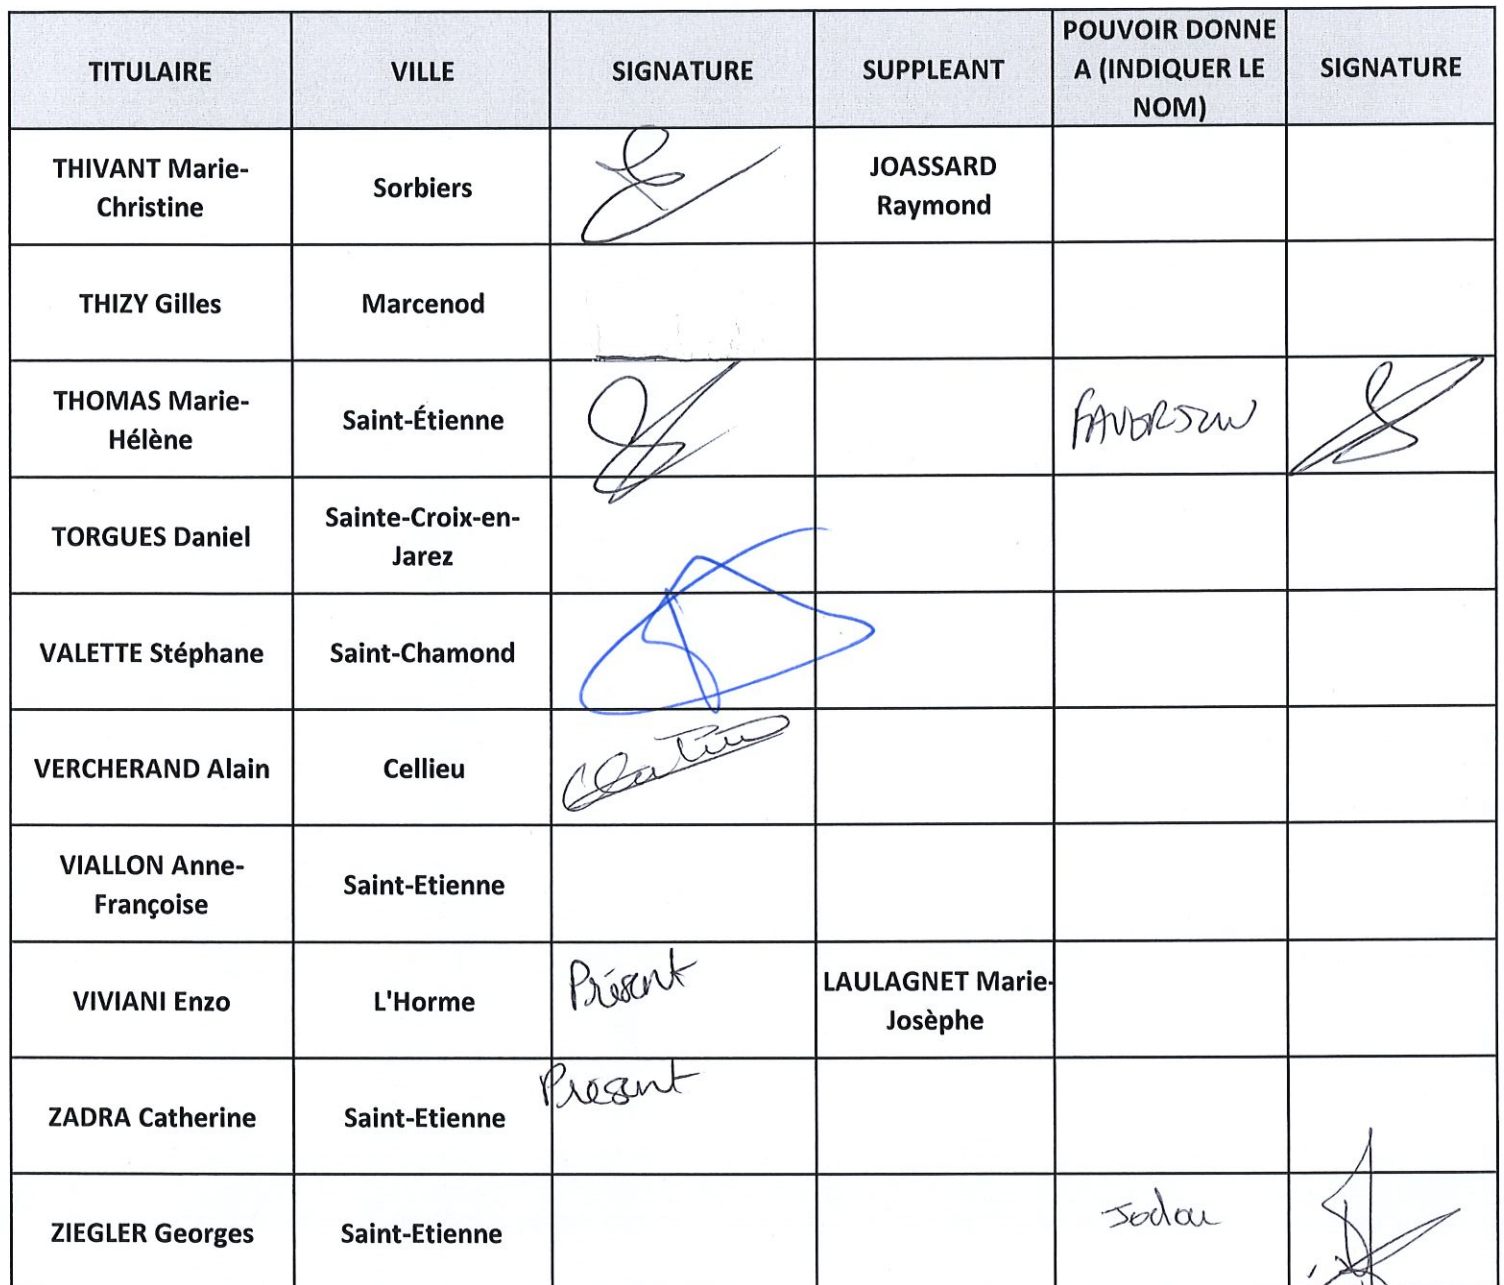 TITULAIRE
VILLE
SIGNATURE
SUPPLEANT
POUVOIR DONNE
A (INDIQUER LE
NOM)
SIGNATURE
THIVANT Marie-
Christine
Sorbiers
JOASSARD
Raymond
THIZY Gilles
Marcenod
THOMAS Marie-
Hélène
Saint-Étienne
TORGUES Daniel
Sainte-Croix-en-
Jarez
VALETTE Stéphane
Saint-Chamond
VERCHERAND Alain
Cellieu
VIALLON Anne-
Françoise
Saint-Etienne
VIVIANI Enzo
L'Horme
Présent
LAULAGNET Marie-
Josèphe
ZADRA Catherine
Saint-Etienne
Present
ZIEGLER Georges
Saint-Etienne